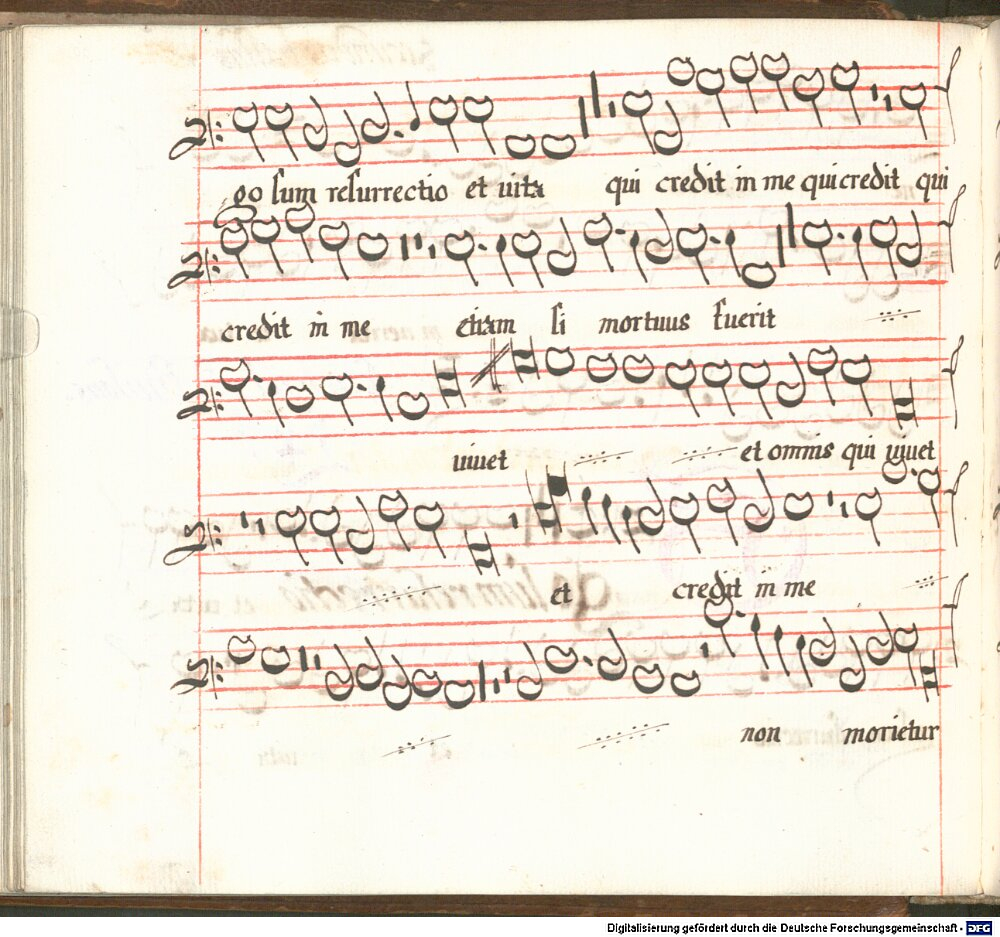 go sum resurrectio et uita qui credit in me qui credit qui
credit in me etiam si mortuus fuerit
uiuet et omnis qui uiuet
et credit in me
non morietur
Digitalisierung gefördert durch die Deutsche Forschungsgemeinschaft - DFG